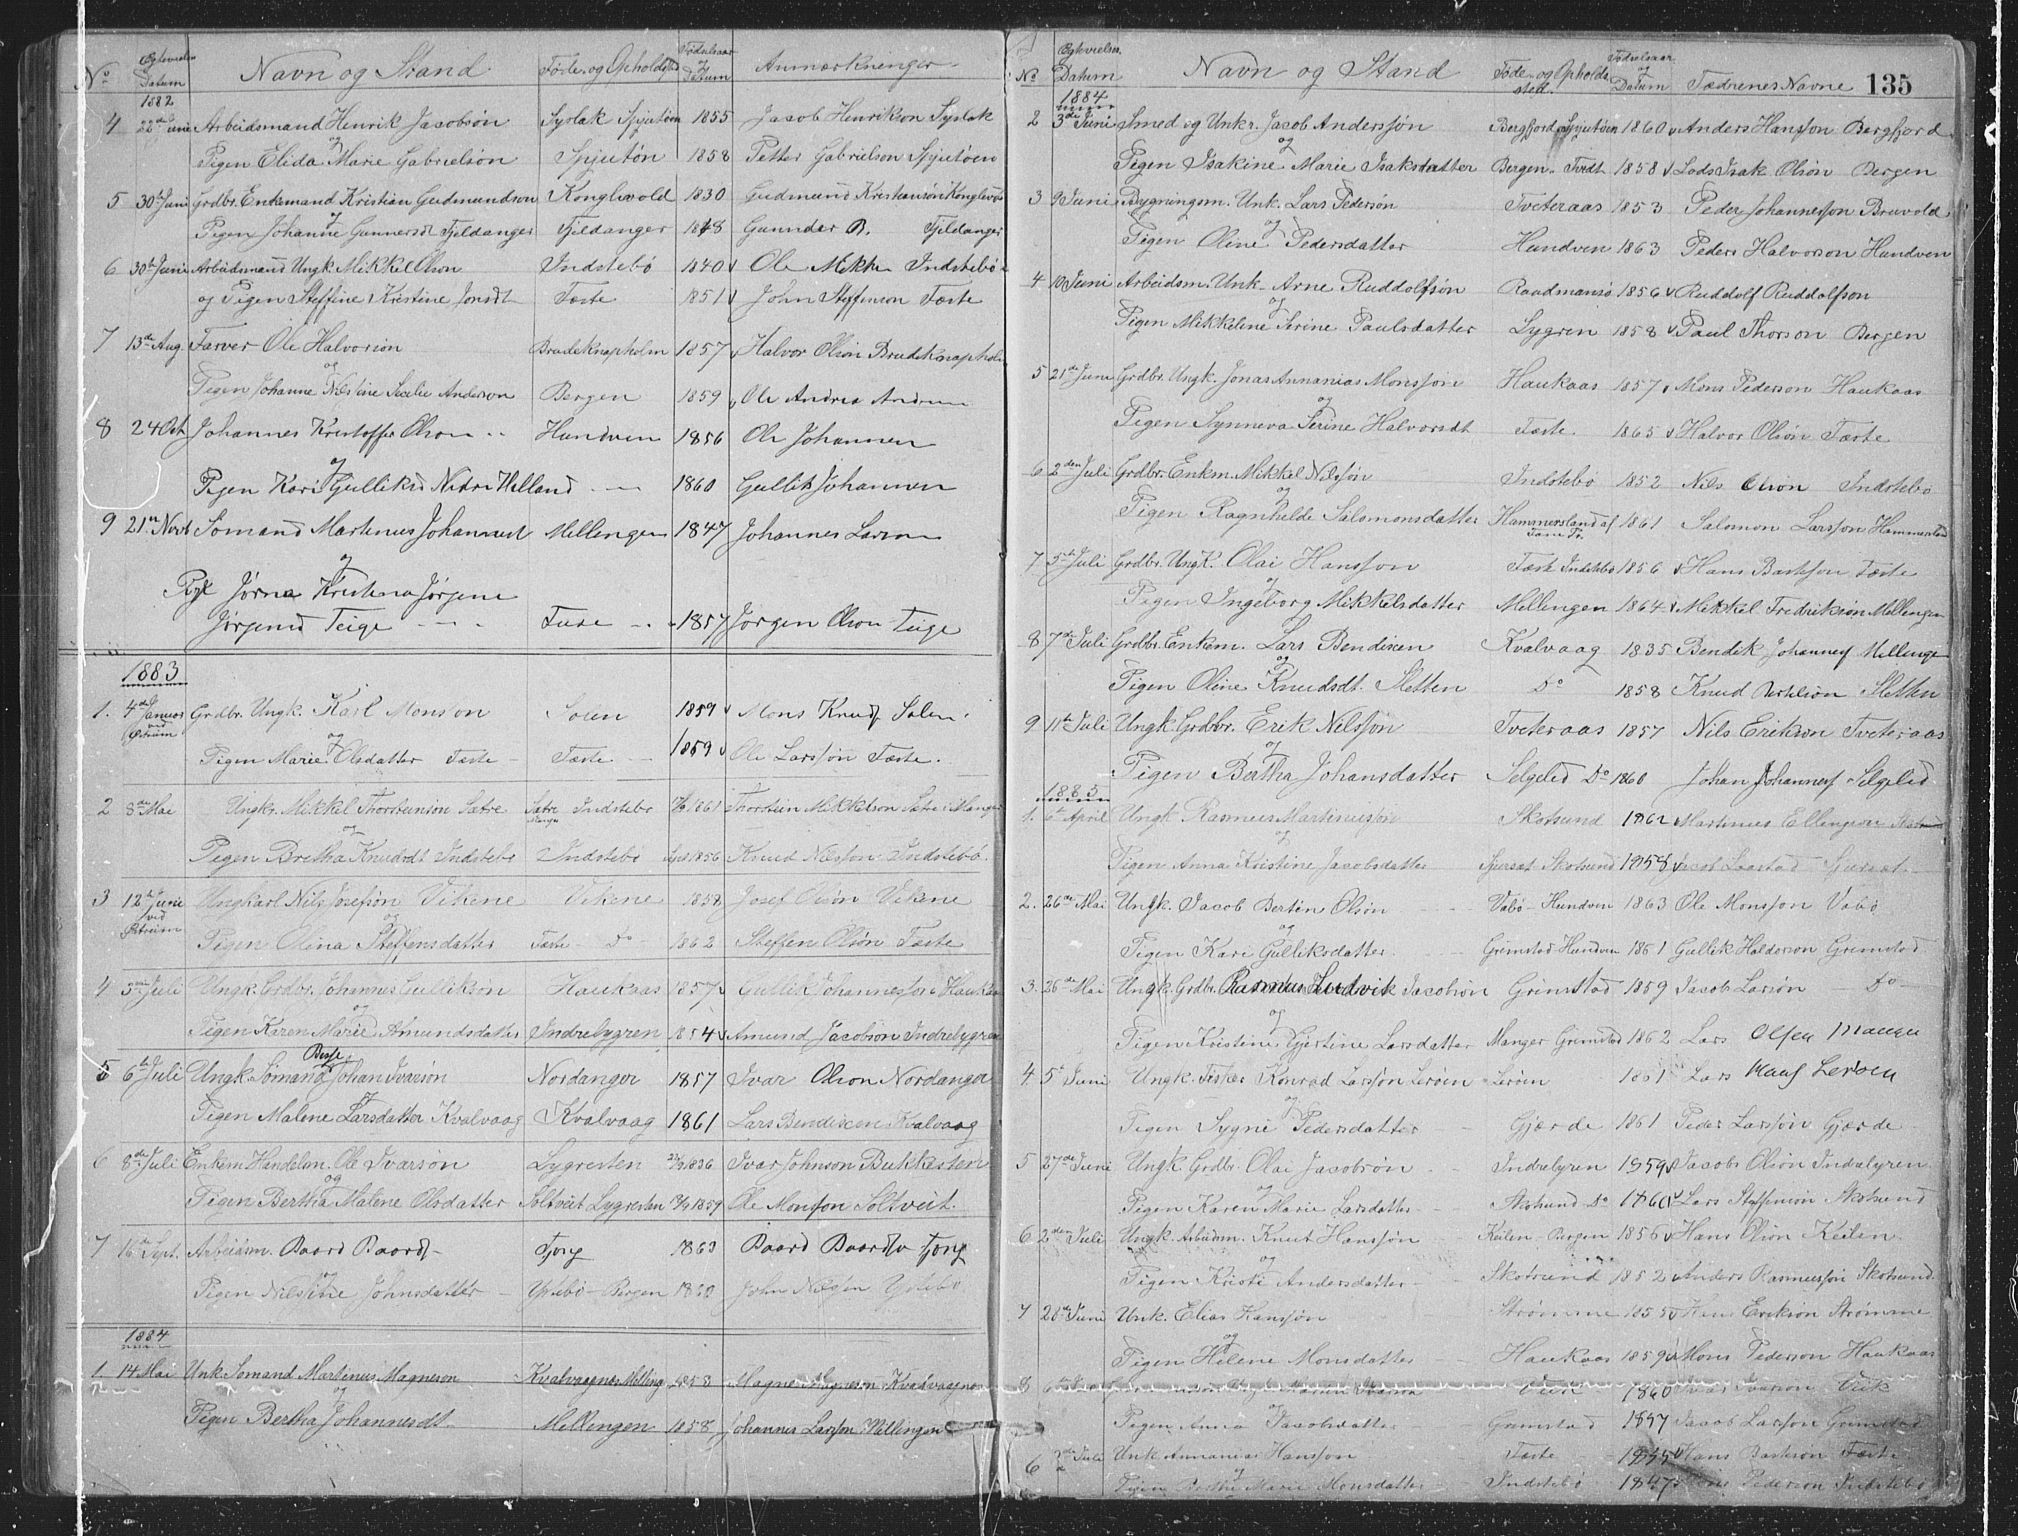 No Egtevielses Datum Navn og Stand. Føde- og Opholdssted Fødselsaar og Datum Anmærkninger.
1882
4 22de Juni Arbeidsmand Henrik Jacobsøn Syslak Spjutøen 1855 Jacob Henrikson Syslak
og
Pigen Elida Marie Gabrielsøn Spjutøn 1858 Petter Gabrielson Spjutøen
5 30te Juni Grdbr. Enkemand Kristian Gudmundson Konglevold 1830 Gudmund Kristiansøn Konglevold
og
Pigen Johanne Gunnersdt Fjeldanger Fjeldanger 1848 Gunnder B. Fjeldanger
6 30te Juni Arbeidsmand Ungk. Mikkel Olson Indstebø 1840 Ole Mikke Indstebø
og Pigen Steffine Kristine Jonsdt Fæste 1851 John Steffenson Fæste
7 13de Aug. Farver Ole Halvorsøn Brudeknapholm 1857 Halvor Olsøn Brudeknapholm
og
Pigen Johanne Nilstine Secelie Anderson Bergen 1859 Ole Andrea
8 24 Oct Johannes Kristoffer Olson Hundven 1856 Ole Johannen
og
Pigen Kari Gulliksd Nedre Helland 1860 Gullik Johannen
9 21de Novb Sømand Martinus Johannesd Mellengen 1847 Johannes Larson
og
Pige Jørna Kristina Jørgene
Jørgensd Teige Fuse 1857 Jørgen Olson Teige
1883
1. 4de Januar ved Østrum Grdbr. Ungk. Karl Monson Solen 1859 Mons Knuds Solen.
og
Pigen Marie Olsdatter Fæste Fæste 1859 Ole Larsson Fæste.
2 8de Mai Ungkr. Mikkel Thorsteinsøn Sætre Sætre Indstebø 1861 Thorstein Mikkelson Sætre i Manger
og
Pigen Bretha Knudsdt Indstebø Indstebø 1856 Knud Nilsson Indstebø.
3 12te Juni ved Østrum Ungkarl Nils Josefsøn Vikene Vikene 1858 Josef Olsøn Vikene
og
Pigen Olina Steffensdatter Fæste Do 1862 Steffen Olsøn Fæste
4 5te Juli Ungk. Grdbr. Johannes Gullikson Haukaas 1857 Gullik Johannesson Haukaas
og
Pigen Karen Marie Amundsdatter Indrelygren 1854 Amund Jacobson Indrelygren
5 6te Juli Ungk. Sømand Johan Ivarsøn Nordanger 1857 Ivar Olson Nordanger
og
Pigen Malene Larsdatter Kvalvaag Kvalvaag 1861 Lars Bendixen Kvalvaag
6 8de Juli Enkem. Handelsm. Ole Ivarsøn Lygresten 1836 Ivar Johnson Bukkesten
og
Pigen Bertha Malene Olsdatter Soltveit Lygresten 1859 Ole Monsson Soltveit.
7 16de Sept. Arbeidsm. Baard Baards Fjong 1863 Baard Baards Fjong
og
Pigen Nilsine Johnsdatter Ystebø - Bergen 1860 John Nilsen Ystebø
1884
1. 14 Mai Unk. Sømand Martinus Magneson Kvalvaagnes Melling 1858 Magne Magneson Kvalvaagnes
og
Pigen Bertha Johannesdt Mellengen 1858 Johannes Larsson Mellingen

135
No Egtevielses Datum Navn og Stand Føde- og Opholdssted. Fødselsaar og Datum Fædrenes Navne
1884
2 3de Juni Smed og Unkr. Jacob Anderssøn Bergfjord Spjutøen 1860 Anders Hansson Bergfjord
og
Pigen Isakine Marie Isaksdatter Bergen Tvedt 1858 Lods Isak Olsøn Bergen
3 9 Juni Bygningsm. Unk. Lars Pedersøn Tveteraas 1853 Peder Johannesson Bruvold
og
Pigen Oline Pedersdatter Hundven 1863 Peder Halvorson Hundven
4 10 Juni Arbeidsm. Unk. Arne Ruddolfsøn Raadmansø 1856 Ruddolf Ruddolfson
og
Pigen Mikkeline Serine Paulsdatter Lygren 1858 Paul Thorson Bergen
5 21de Juni Grdbr. Ungk. Jonas Annanias Monssøn Haukaas 1857 Mons Pederson Haukaas
og
Pigen Synneva Serine Halvorsdt Fæste 1865 Halvor Olsøn Fæste
6 2den Juli Grdbr. Enkm. Mikkel Nilssøn Indstebø 1852 Nils Olson Indstebø
og
Pigen Ragnhilde Salomonsdatter Hammersland af Fane Pr. 1861 Salomon Larsson Hammersland
7 5te Juli Grdbr. Ungk. Olai Hansson Fæste Indstebø 1856 Hans Bastson Fæste
og
Pigen Ingeborg Mikkelsdatter Mellengen 1864 Mikkel Fredrikson Mellengen
8 7de Juli Grdbr. Enkem. Lars Bendixen Kvalvaag 1835 Bendik Johannes Mellingen
og
Pigen Oline Knudsdt. Sletten Do 1858 Knud Bertelson Sletten
9 11te Juli Ungk. Grdbr. Erik Nilssøn Tveteraas 1857 Nils Erikson Tveteraas
og
Pigen Bertha Johansdatter Selgelid Do 1860 Johan Johannes Selgelid
1885
1. 6te April Ungk Rasmus Martinussøn Skotsund 1862 Martinus Ellingson
og
Pigen Anna Kristine Jacobsdatter Skotsund 1858 Jacob
2. 26de Mai Ungk. Jacob Berten Olsøn Vabø - Hundven 1863 Ole Monsson Vabø
og
Pigen Kari Gulliksdatter Grimstad Hundven 1861 Gullik Haldorson Grimstad
3. 26de Mai Ungk. Grdbr. Rasmus Ludvik Jacobsøn Grimstad 1859 Jacob Larsøn Do
og
Pigen Kristine Gjertine Larsdatter Manger Grimstad 1862 Lars Olsen Manger
4 5te Juni Ungk. Fisker Konrad Larsson Lerøen Lerøen 1861 Lars Lerøen
og
Pigen Sygni Pedersdatter Gjerde 1861 Peder Larssøn Gjærde
5 27de Juni Ungk. Grdbr. Olai Jacobsøn Indrelyren 1859 Jacob Olson Indrelyren
og
Pigen Karen Marie Larsdatter Skotsund Do 1860 Lars Steffensøn Skotsund
6 2den Juli Ungk. Arbeidsm. Knut Hanssøn Keilen Bergen 1856 Hans Olsøn Keilen
og
Pigen Kristi Andersdatter Skotsund 1852 Anders Rasmussøn Skotsund
7 26de Juni Unk. Elias Hanssøn Strømme 1855 Erikson Strømme
og
Pigen Helene Monsdatter Haukaas 1859 Mons Pederson Haukaas
8 1860 Ivar Ivarson Vik
Pigen Anna Jacobsdatter Grimstad 1857 Jacob Larsson Grimstad
6 Juli Unk Annanias Hansson Fæste Hans Bastson Fæste
og
Pigen Berthe Marie Monsdatter Indstebø 1847 Pederson Indstebø